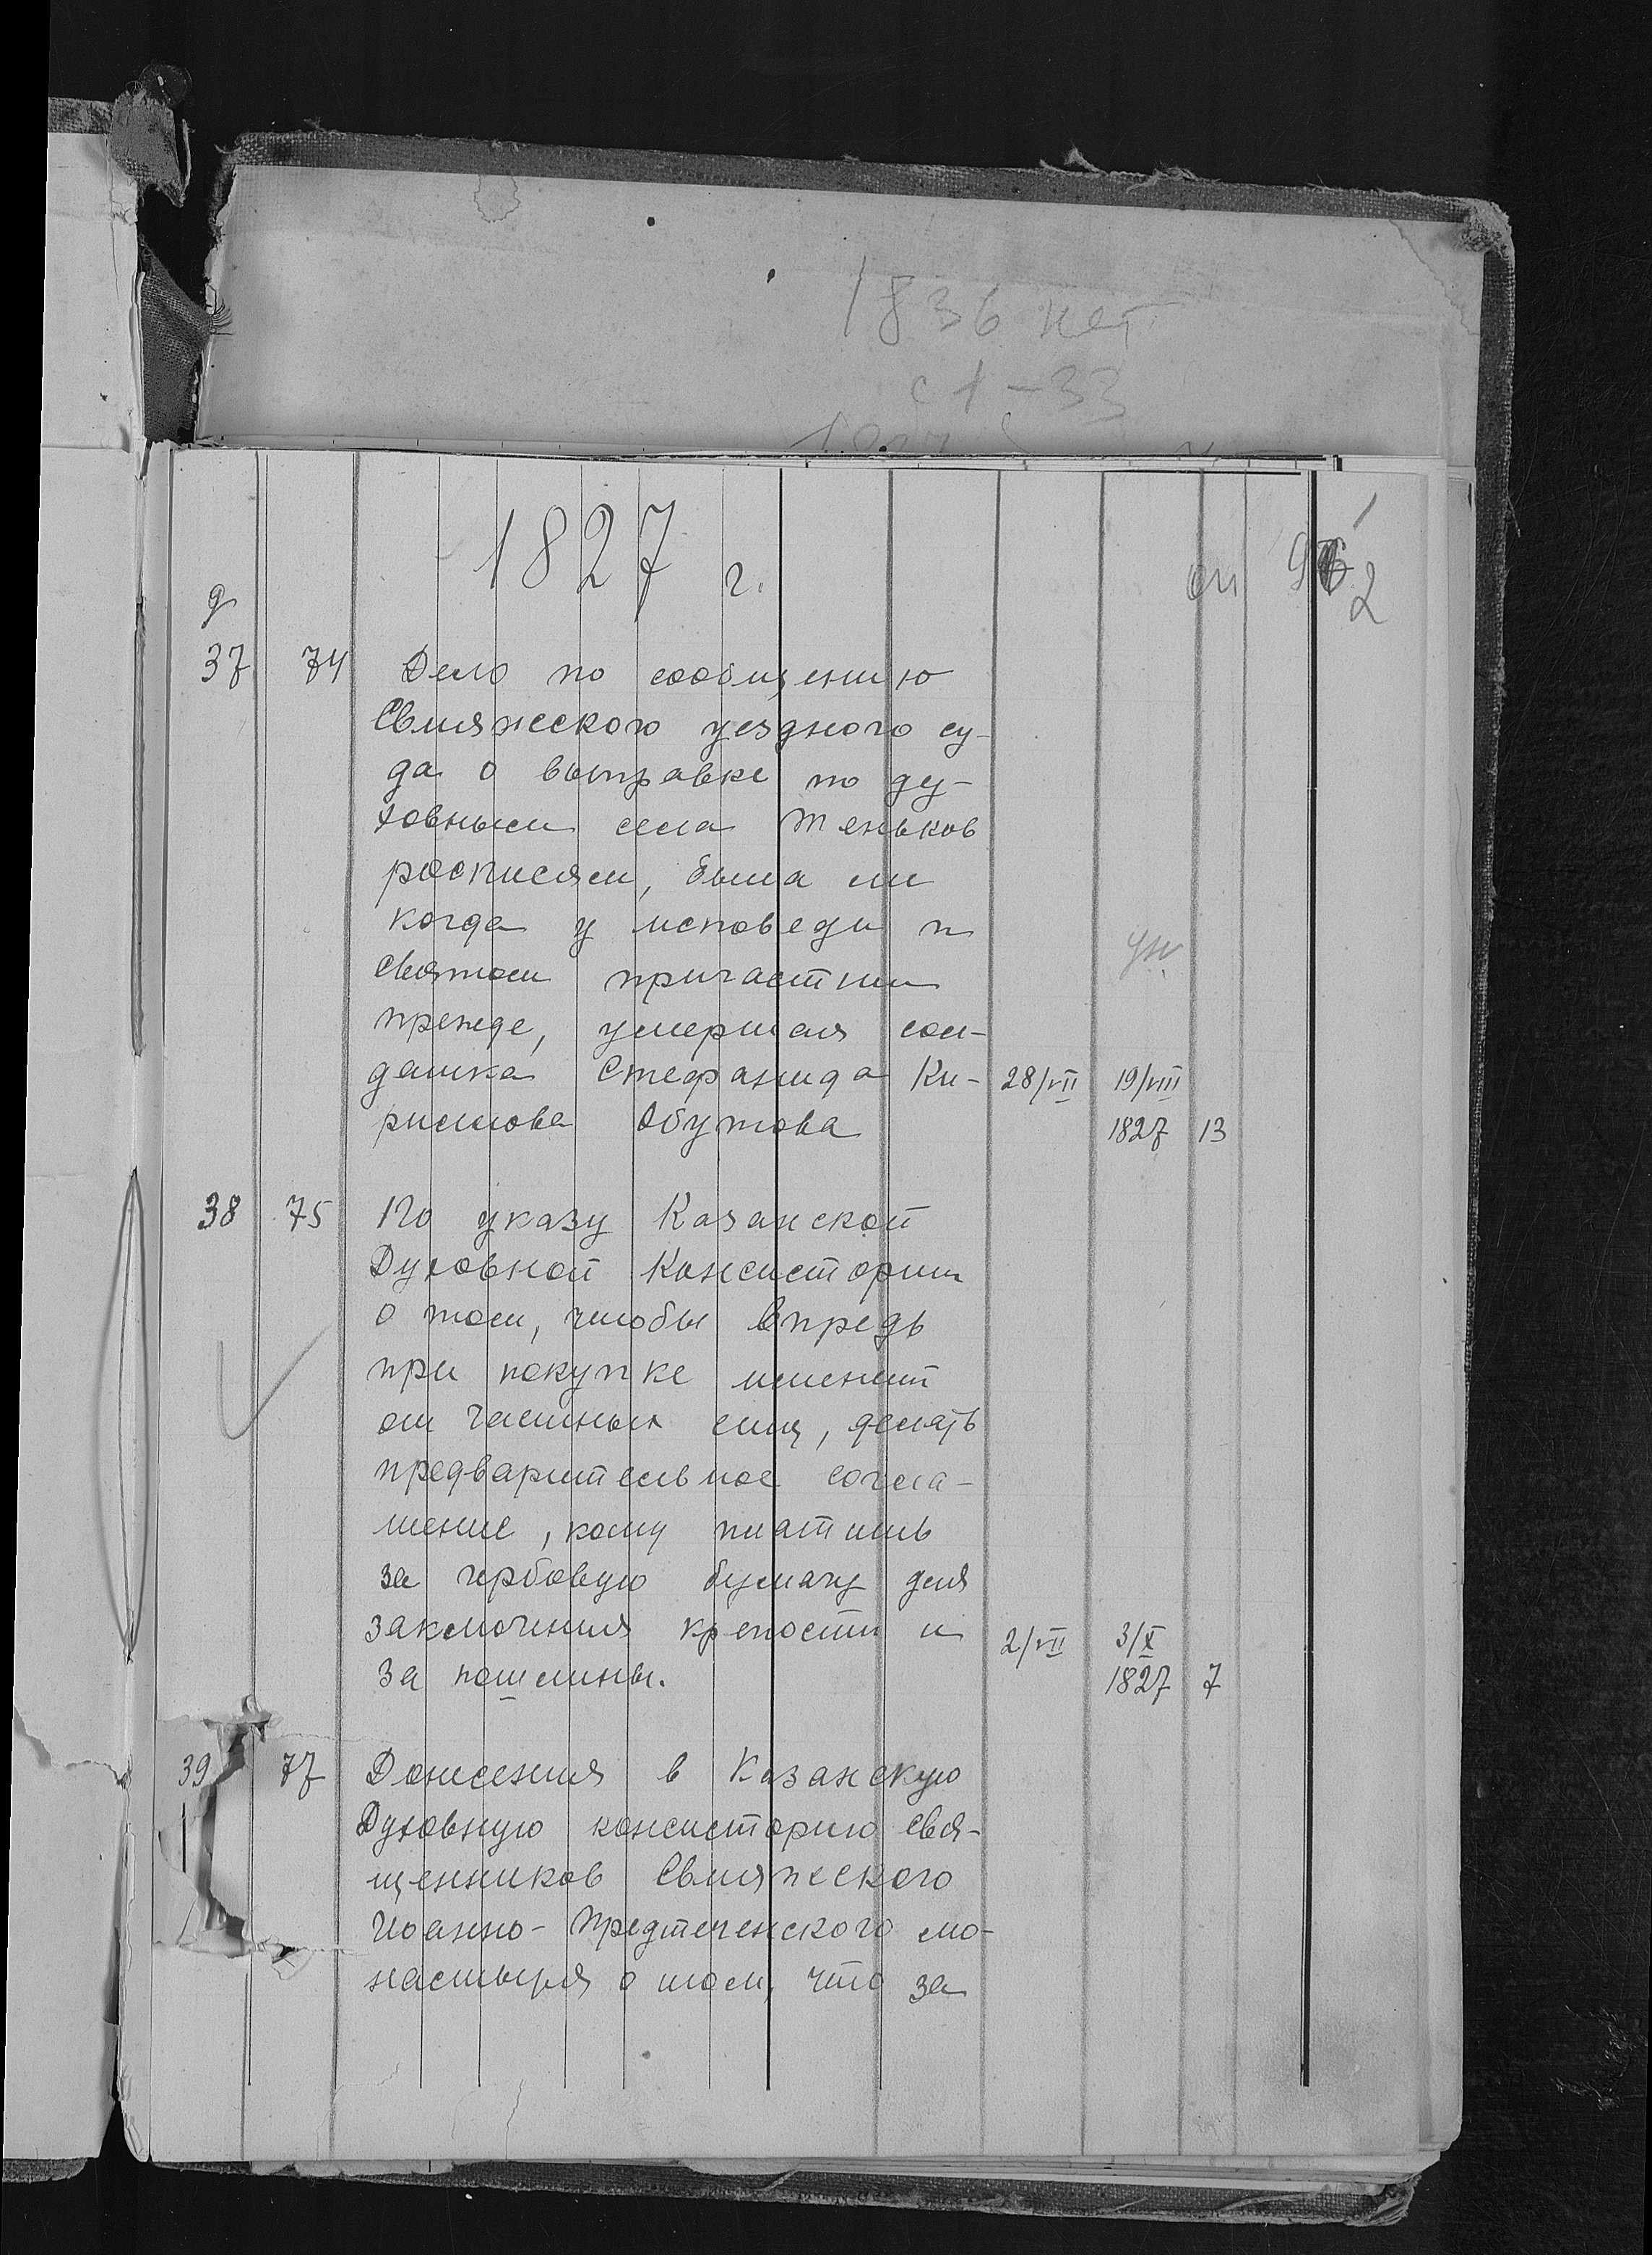 1836 нет
с 1-33
1827 г.
оп 962
д
37 74 Дело по сообщению
Свияжского уездного су-
да о выправке по ду-
ховным села Теньков
росписям, была ли
когда у исповеди и
святом причастии
прежде, умершая сол-
датка Стефанида Ки- 28/VII 19/VIII
риллова Обутова 1827 13
38 75 По указу Казанской
Духовной Консистории
о том, чтобы впредь
при покупке имений
от частных лиц, делать
предварительное согла-
шение, кому платить
за гербовую бумагу для
заключения крепости и 2/VII 3/X
за пошлины. 1827 7
39 77 Донесения в Казанскую
Духовную консисторию свя-
щенников Свияжского
Иоанно-Предтеченского мо-
настыря о том, что за